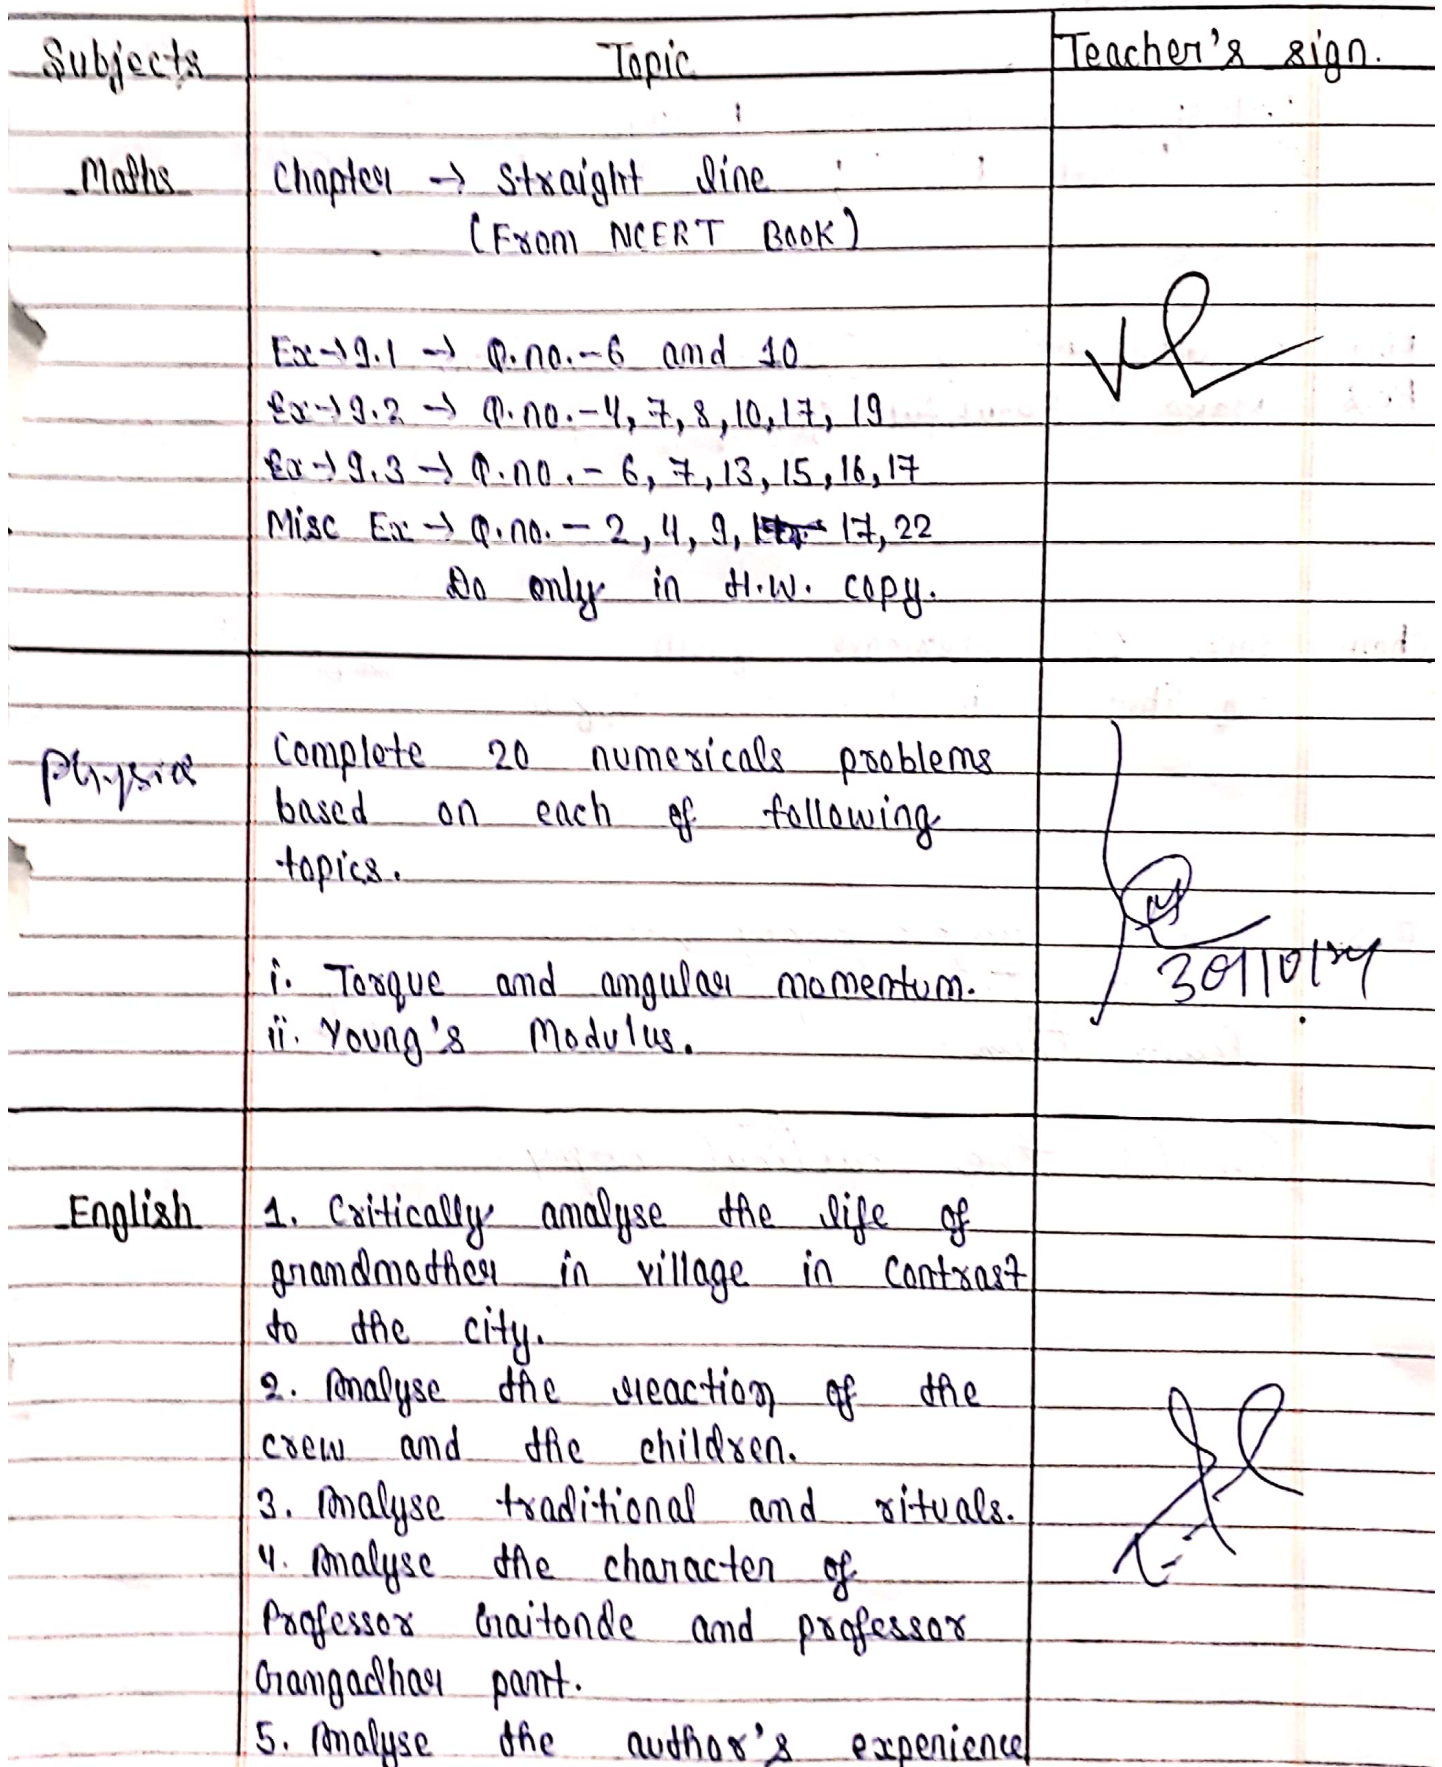 Subjects Topic Teacher's sign.
Maths Chapter → Straight line
(From NCERT BOOK)
Ex→9.1 → Q.no.-6 and 10
Ex→9.2 → Q.no.-4, 7, 8, 10, 17, 19
Ex→9.3 → Q.no.- 6, 7, 13, 15, 16, 17
Misc Ex → Q.no. - 2, 4, 9, 17, 22
Do only in H.W. copy.
Physics Complete 20 numericals problems
based on each of following
topics.
i. Torque and angular momentum.
30/10/24
ii. Young's Modulus.
English 1. Critically analyse the life of
grandmother in village in contrast
to the city.
2. Analyse the reaction of the
crew and the children.
3. Analyse traditional and rituals.
4. Analyse the character of
Professor Gaitonde and professor
Gangadhar pant.
5. Analyse the author's experience